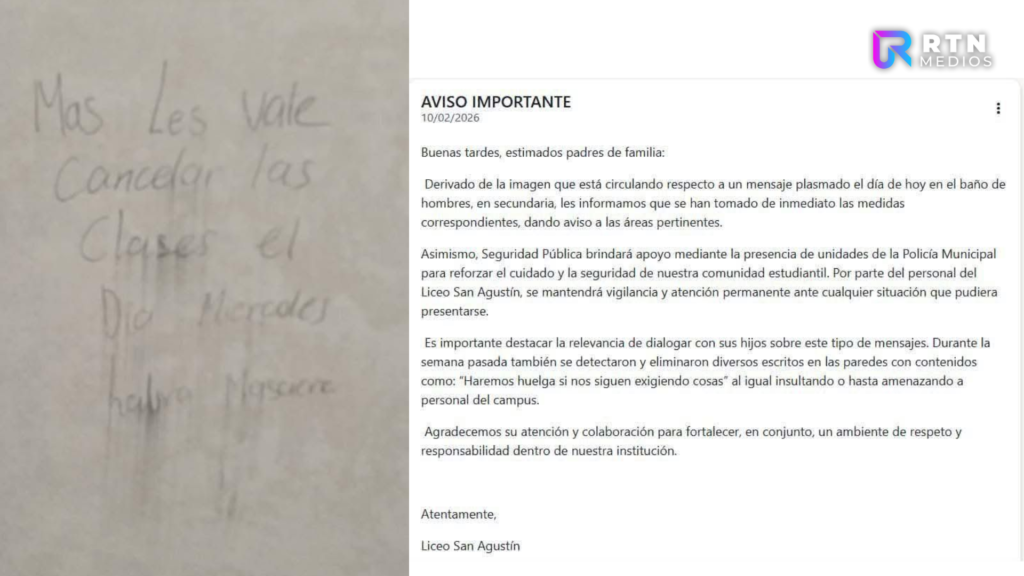 Mas Les Vale
Cancelar las
Clases el
Dia Miercoles
habra Masacre
RTN
MEDIOS
AVISO IMPORTANTE
10/02/2026
Buenas tardes, estimados padres de familia:
Derivado de la imagen que está circulando respecto a un mensaje plasmado el día de hoy en el baño de
hombres, en secundaria, les informamos que se han tomado de inmediato las medidas
correspondientes, dando aviso a las áreas pertinentes.
Asimismo, Seguridad Pública brindará apoyo mediante la presencia de unidades de la Policía Municipal
para reforzar el cuidado y la seguridad de nuestra comunidad estudiantil. Por parte del personal del
Liceo San Agustín, se mantendrá vigilancia y atención permanente ante cualquier situación que pudiera
presentarse.
Es importante destacar la relevancia de dialogar con sus hijos sobre este tipo de mensajes. Durante la
semana pasada también se detectaron y eliminaron diversos escritos en las paredes con contenidos
como: “Haremos huelga si nos siguen exigiendo cosas” al igual insultando o hasta amenazando a
personal del campus.
Agradecemos su atención y colaboración para fortalecer, en conjunto, un ambiente de respeto y
responsabilidad dentro de nuestra institución.
Atentamente,
Liceo San Agustín